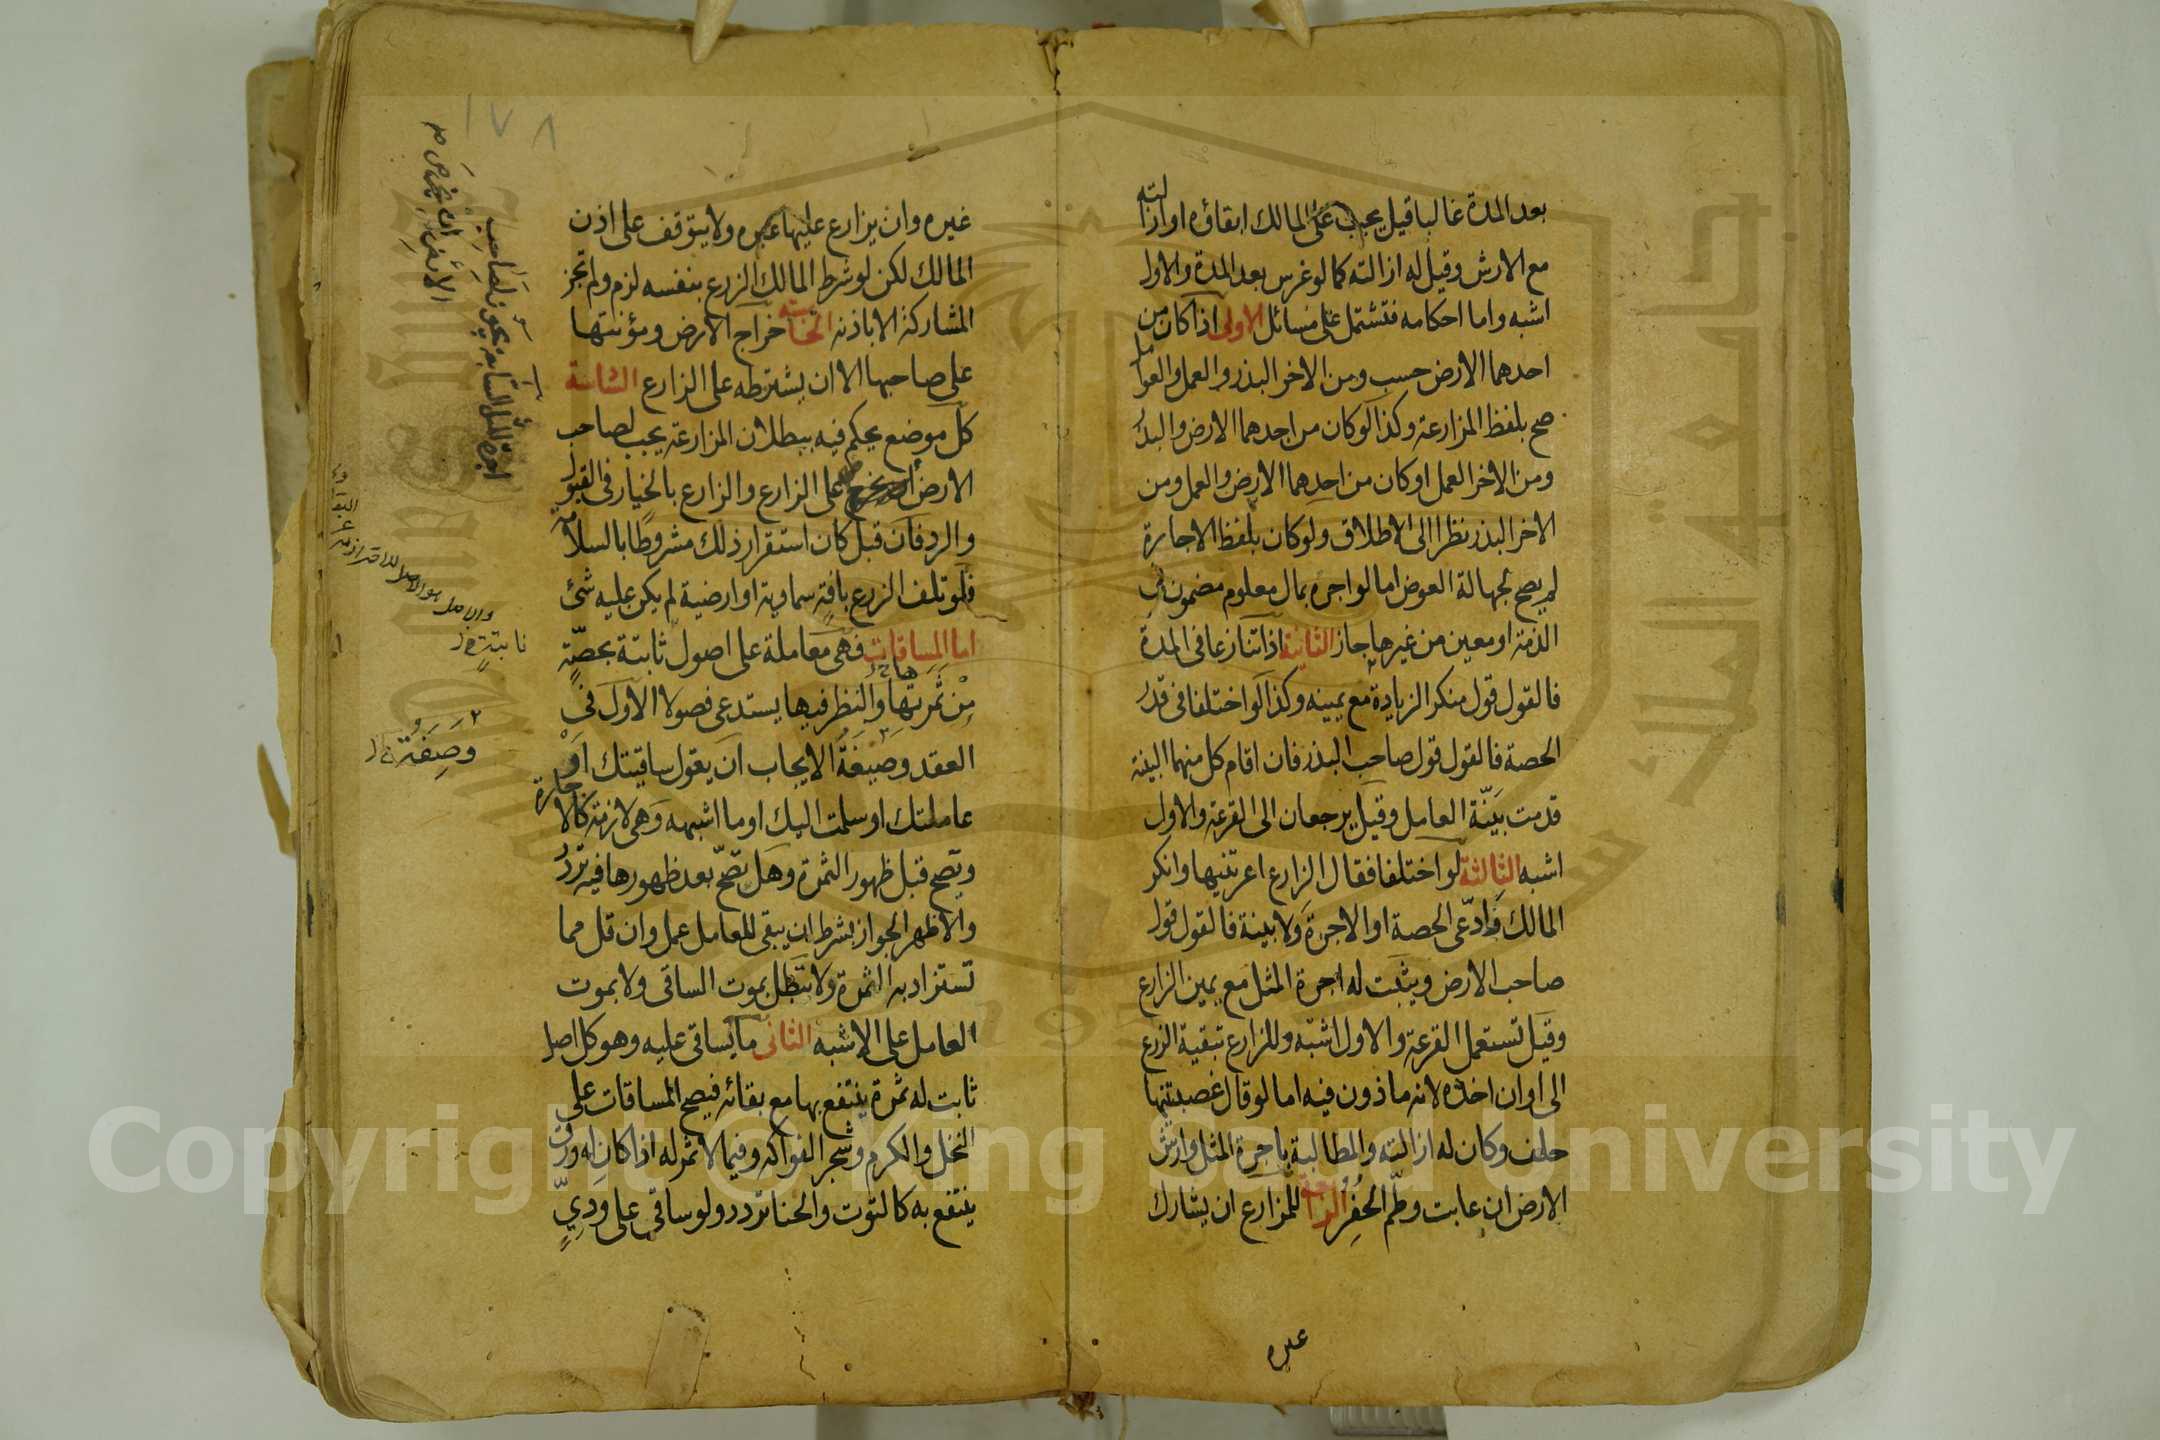 بعد المدة غالبا قيل يجب على المالك ابقاؤه او ازالته
مع الارش وقيل له ازالته كما لو غرس بعد المدة والاول
اشبه واما احكامه فتشتمل على مسائل الاولى اذا كان من
احدهما الارض حسب ومن الاخر البذر والعمل والعوامل
صح بلفظ المزارعة وكذا لو كان من احدهما الارض والبذر
ومن الاخر العمل او كان من احدهما الارض والعمل ومن
الاخر البذر نظرا الى الاطلاق ولو كان بلفظ الاجارة
لم يصح لجهالة العوض اما لو اجره بمال معلوم مضمون في
الذمة او معين من غيرها جاز الثانية اذا تنازعا في المدة
فالقول قول منكر الزيادة مع يمينه وكذا لو اختلفا في قدر
الحصة فالقول قول صاحب البذر فان اقام كل منهما البينة
قدمت بيّنة العامل وقيل يرجعان الى القرعة والاول
اشبه الثالثة لو اختلفا فقال الزارع اعرتنيها وانكر
المالك فادّعى الحصة او الاجرة ولا بينة فالقول قول
صاحب الارض ويثبت له اجرة المثل مع يمين الزارع
وقيل تستعمل القرعة والاول اشبه وللزارع تبقية الزرع
الى اوان اخذه لانه ماذون فيه اما لو قال غصبتنيها
حلف وكان له ازالته والمطالبة باجرة المثل وارش
الارض ان عابت وطمّ الحُفر الرابعة للمزارع ان يشارك
غيره
١٧٨
غيره وان يزارع عليها غيره ولا يتوقف على اذن
المالك لكن لو شرط المالك الزرع بنفسه لزم ولم تجز
المشاركة الا باذنه الخامسة خراج الارض ومؤنتها
على صاحبها الا ان يشترطه على الزارع السادسة
كل موضع يحكم فيه ببطلان المزارعة يجب لصاحب
الارض ان يخرج على الزارع والزارع بالخيار في القبول
والرد فان قبل كان استقرار ذلك مشروطا بالسلامة
فلو تلف الزرع بافة سماوية او ارضية لم يكن عليه شئ
اما المساقات فهي معاملة على اصول ثابتة بحصّة
مِنْ ثَمَرتها والنظر فيها يستدعى فصولا الاول في
العقد وصيغة الايجاب ان يقول ساقيتك او
عاملتك او سلمت اليك او ما اشبهه وهي لازمة كالاجارة
وتصح قبل ظهور الثمرة وهل تصحّ بعد ظهورها فيه تردد
والاظهر الجواز بشرط ان يبقى للعامل عمل وان قل مما
تستزاد به الثمرة ولا تبطل بموت الساقى ولا بموت
العامل على الاشبه الثانى ما يساقى عليه وهو كل اصل
ثابت له ثمرة ينتفع بها مع بقائه فيصح المساقات على
النخل والكرم وشجر الفواكه وفيما لا ثمر له اذا كان له ورق
ينتفع به كالتوت والحنا تردد ولو ساقى على ودِيٍّ
اجرة المثل
يجوز لصاحب
الارض ان يخرص
نابتة
وصِيغة
Copyright © King Saud University
جامعة الملك سعود
1957